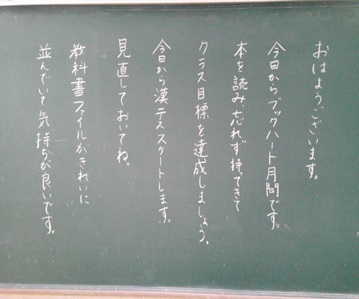 おはようございます。
今日からブックハート月間です。
本を読み忘れず持ってきて
クラス目標を達成しましょう。
今日から漢テススタートします。
見直しておいてね。
教科書ファイルがきれいに
並んでいて気持ちが良いです。